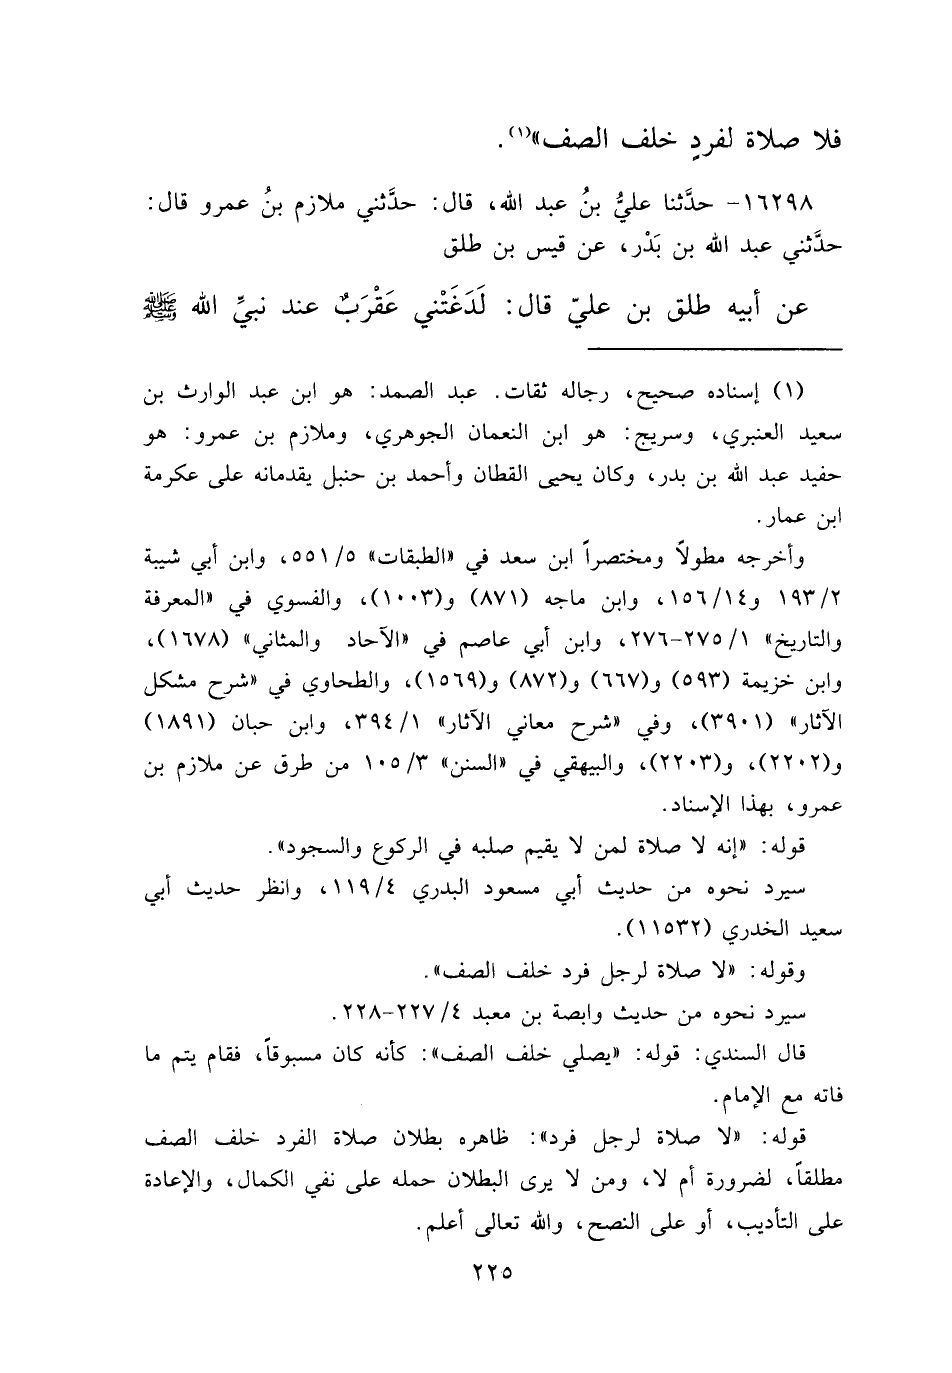 فلا صلاة لفردٍ خلف الصف»(١).
١٦٢٩٨- حدَّثنا عليُّ بنُ عبد الله، قال: حدَّثني ملازم بنُ عمرو قال:
حدَّثني عبد الله بن بَدْر، عن قيس بن طلق
عن أبيه طلق بن عليّ قال: لَدَغَتْني عَقْرَبٌ عند نبيِّ الله ﷺ
(١) إسناده صحيح، رجاله ثقات. عبد الصمد: هو ابن عبد الوارث بن
سعيد العنبري، وسريج: هو ابن النعمان الجوهري، وملازم بن عمرو: هو
حفيد عبد الله بن بدر، وكان يحيى القطان وأحمد بن حنبل يقدمانه على عكرمة
ابن عمار.
وأخرجه مطولاً ومختصراً ابن سعد في «الطبقات» ٥٥١/٥، وابن أبي شيبة
١٩٣/٢ و١٥٦/١٤، وابن ماجه (٨٧١) و(١٠٠٣)، والفسوي في «المعرفة
والتاريخ» ٢٧٥/١-٢٧٦، وابن أبي عاصم في «الآحاد والمثاني» (١٦٧٨)،
وابن خزيمة (٥٩٣) و(٦٦٧) و(٨٧٢) و(١٥٦٩)، والطحاوي في «شرح مشكل
الآثار» (٣٩٠١)، وفي «شرح معاني الآثار» ٣٩٤/١، وابن حبان (١٨٩١)
و(٢٢٠٢)، و(٢٢٠٣)، والبيهقي في «السنن» ١٠٥/٣ من طرق عن ملازم بن
عمرو، بهذا الإسناد.
قوله: «إنه لا صلاة لمن لا يقيم صلبه في الركوع والسجود».
سيرد نحوه من حديث أبي مسعود البدري ١١٩/٤، وانظر حديث أبي
سعيد الخدري (١١٥٣٢).
وقوله: «لا صلاة لرجل فرد خلف الصف».
سيرد نحوه من حديث وابصة بن معبد ٢٢٧/٤-٢٢٨.
قال السندي: قوله: «يصلي خلف الصف»: كأنه كان مسبوقاً، فقام يتم ما
فاته مع الإمام.
قوله: «لا صلاة لرجل فرد»: ظاهره بطلان صلاة الفرد خلف الصف
مطلقاً، لضرورة أم لا، ومن لا يرى البطلان حمله على نفي الكمال، والإعادة
على التأديب، أو على النصح، والله تعالى أعلم.
٢٢٥